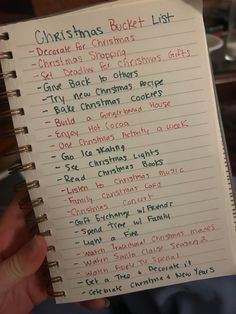 Christmas Bucket List
- Decorate for Christmas
- Christmas Shopping
- Set Deadline for Christmas Gifts
- Give Back to others
- Try new Christmas Recipe
- Bake Christmas Cookies
- Build a Gingerbread House
- Enjoy Hot Cocoa
- One Christmas Activity a week
- Go Ice Skating
- See Christmas Lights
- Read Christmas Books
- Listen to Christmas music
- Family Christmas Card
- Christmas Concert
- Gift Exchange w/ Friends
- Spend Time w/ Family
- Light a Fire
- Watch Traditional Christmas movies
- Watch Santa Clause Season 2
- Watch Special
- Get a Tree & Decorate it
- Celebrate Christmas & New Years